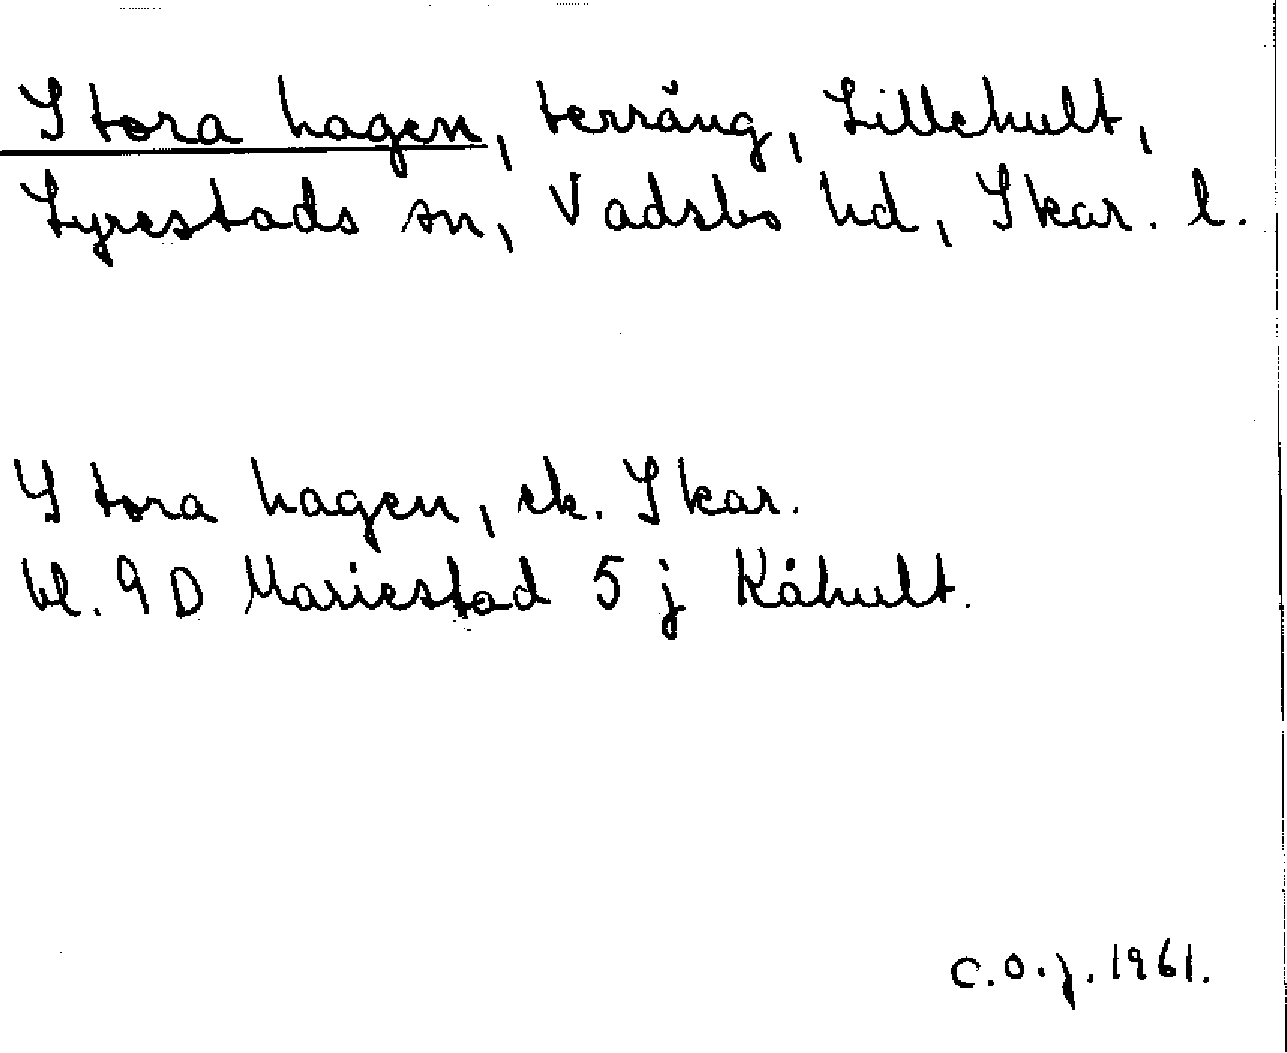 Stora hagen, terräng, Lillehult,
Lyrestads sn, Vadsbo hd, Skar. l.
Stora hagen, ek. Skar.
bl. 9D Mariestad 5 j Råhult.
C.O.J. 1961.